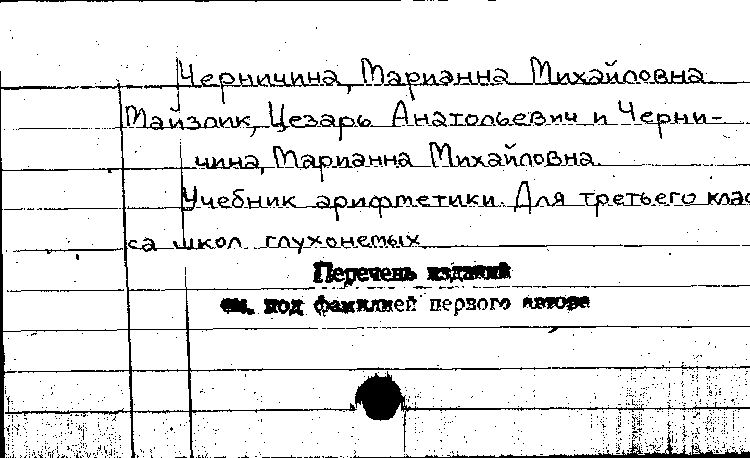 Черничина, Марианна Михайловна
Майзлик, Цезарь Анатольевич и Черни-
чина, Марианна Михайловна.
Учебник арифметики. Для третьего клас
са школ глухонемых
Перечень изданий
см. под фамилией первого автора